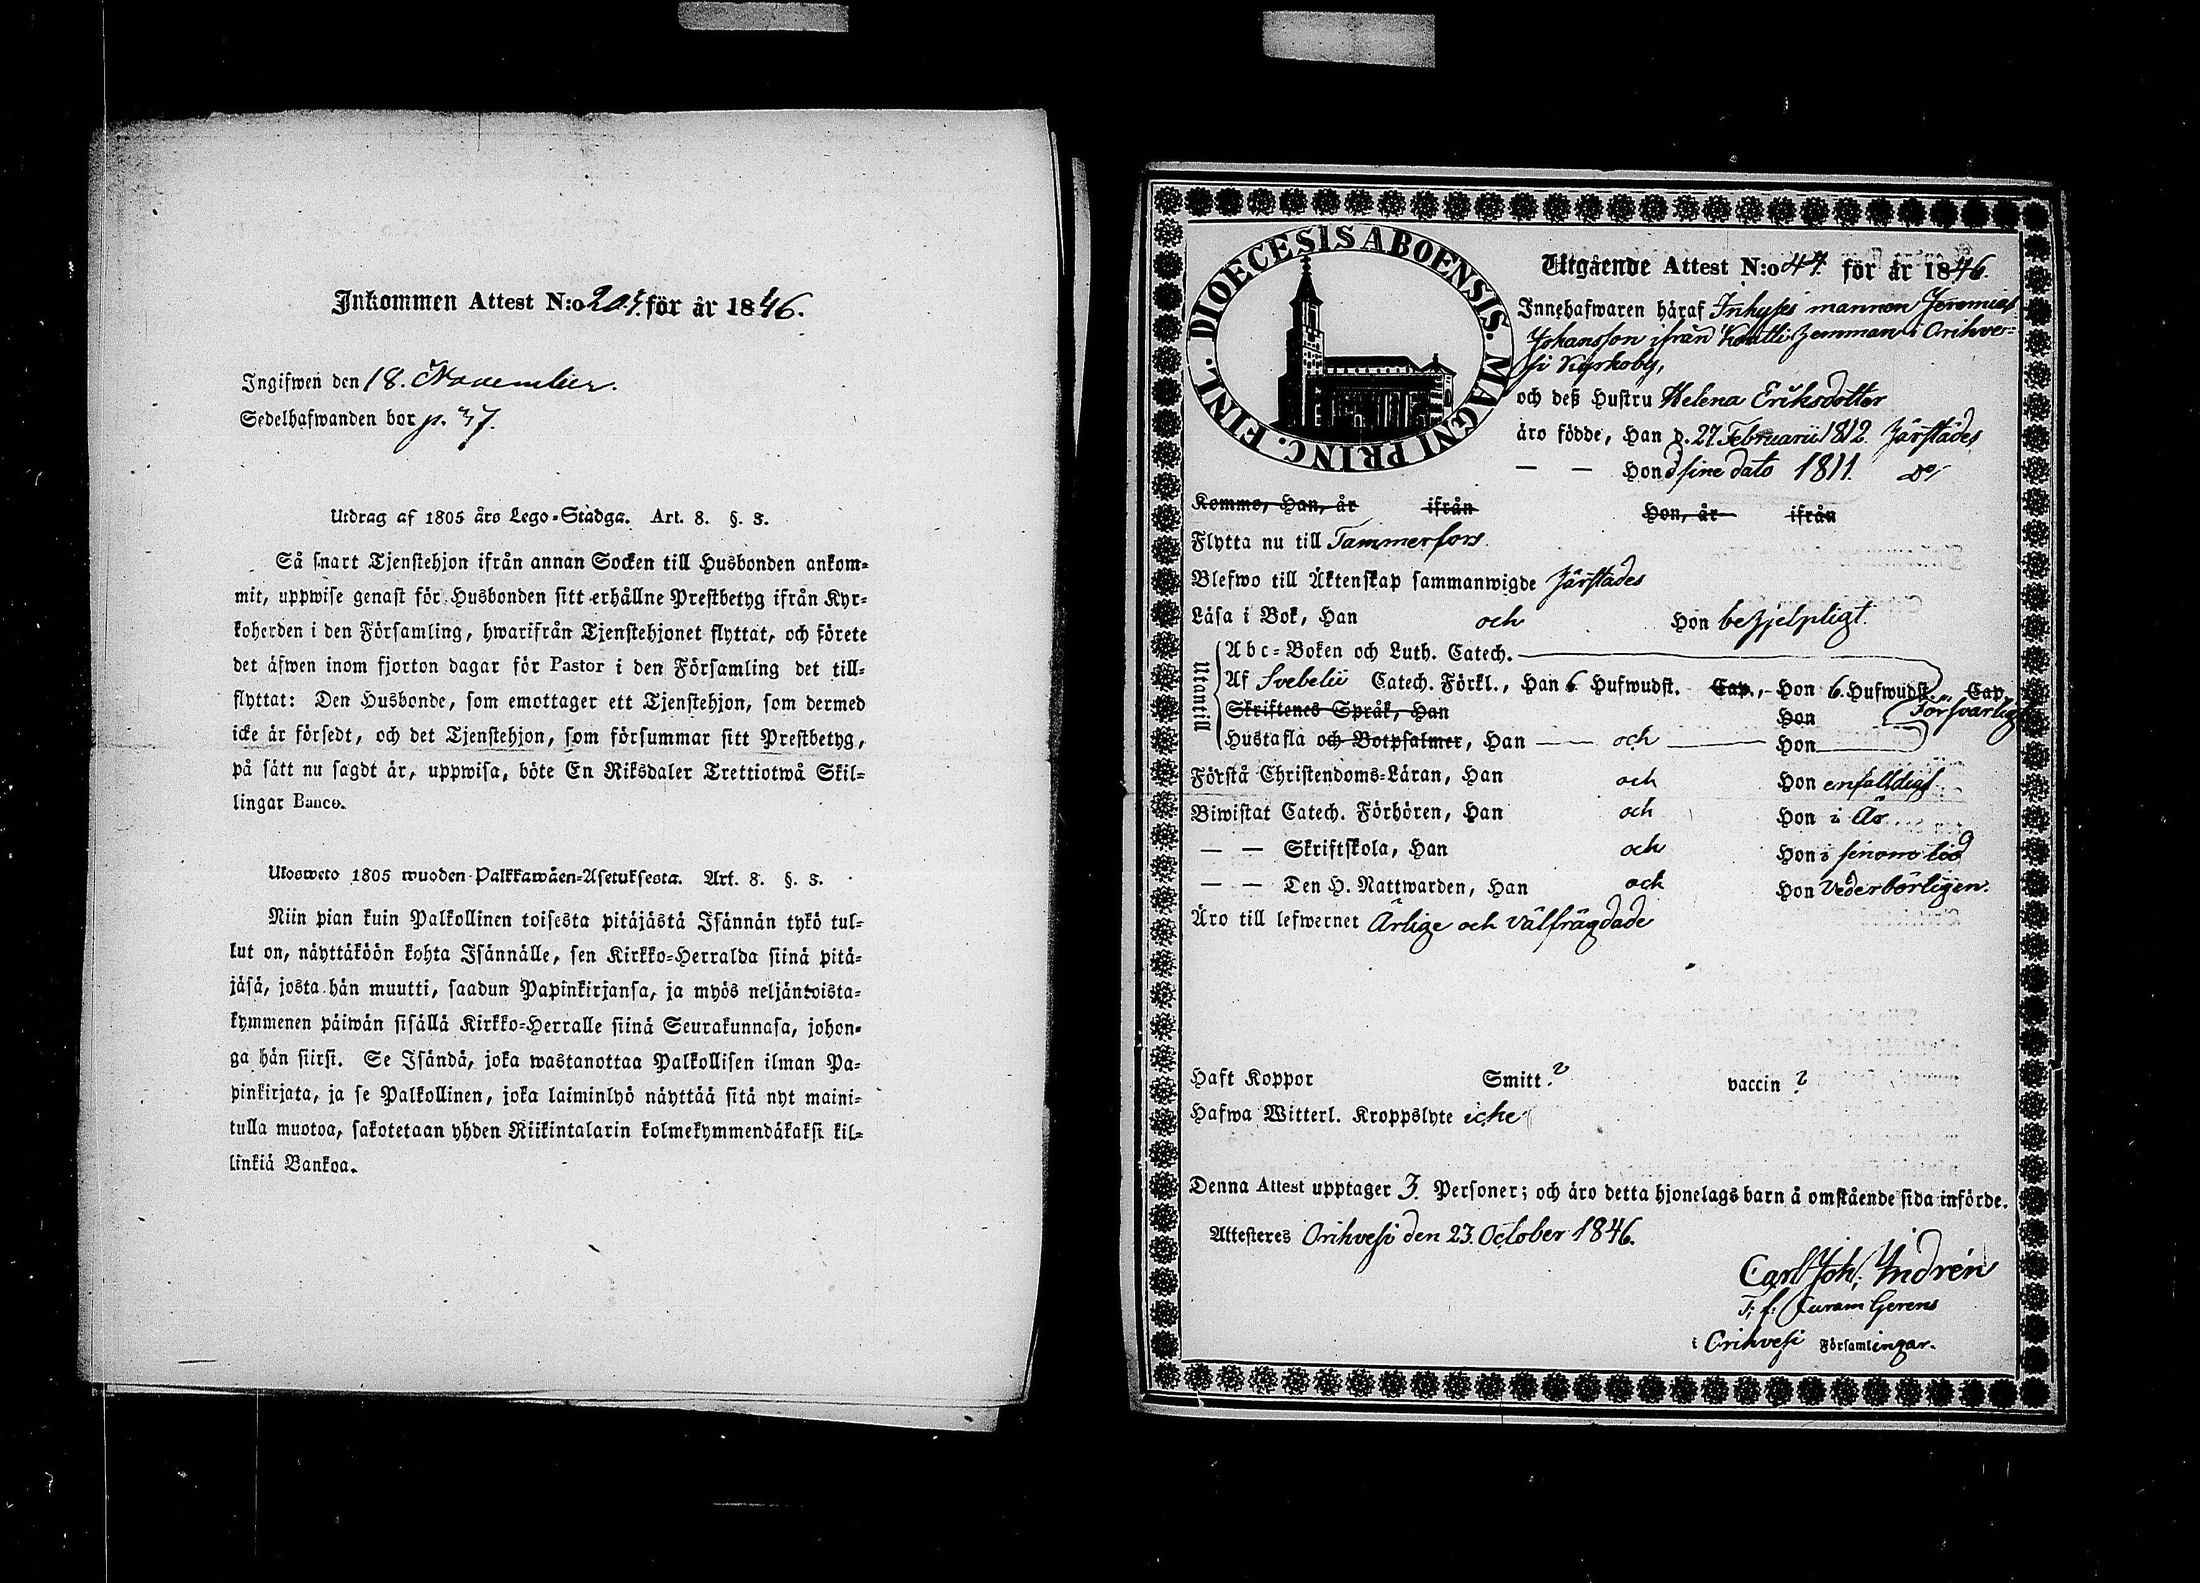 Inkommen Attest N:o 204. för år 1846.
Ingifwen den 18. November.
Sedelhafwanden bor p. 37.
Utdrag af 1805 års Lego-Stadga. Art. 8. §. 8.
Så snart Tjenstehjon ifrån annan Socken till Husbonden ankom-
mit, uppwise genast för Husbonden sitt erhållne Prestbetyg ifrån Kyr-
koherden i den Församling, hwarifrån Tjenstehjonet flyttat, och förete
det äfwen inom fjorton dagar för Pastor i den Församling det till-
flyttat: Den Husbonde, som emottager ett Tjenstehjon, som dermed
icke är försedt, och det Tjenstehjon, som försummar sitt Prestbetyg,
på sätt nu sagdt är, uppwisa, böte En Riksdaler Trettiotwå Skil-
lingar Banco.
Ulosweto 1805 wuoden Palkkawäen-Asetuksesta. Art. 8. §. 8.
Niin pian kuin Palkollinen toisesta pitäjästä Isännän tykö tul-
lut on, näyttäköön kohta Isännälle, sen Kirkko-Herralda siinä pitä-
jäsä, josta hän muutti, saadun Papinkirjansa, ja myös neljäntoista-
kymmenen päiwän sisällä Kirkko-Herralle siinä Seurakunnasa, johon-
ga hän siirsi. Se Isändä, joka wastanottaa Palkollisen ilman Pa-
pinkirjata, ja se Palkollinen, joka laiminlyö näyttää sitä nyt maini-
tulla muotoa, sakotetaan yhden Riikintalarin kolmekymmendäkaksi kil-
linkiä Bankoa.
DIOECESIS ABOENSIS. MAGNI PRINC. FINL.
Utgående Attest N:o 47. för år 1846.
Innehafwaren häraf Inhyses mannen Jeremias
Johansson ifrån Koutti hemman i Orihve-
si Kyrkoby,
och deß Hustru Helena Eriksdotter
äro födde, Han d. 27 Februarii 1812. härstädes
— — Hon sine dato 1811. Do/
Komme, Han, år ifrån Hon, år ifrån
Flytta nu till Tammerfors
Blefwo till Äktenskap sammanwigde härstädes
Läsa i Bok, Han och Hon behjelpligt.
Utantill
Abc-Boken och Luth. Catech.
Af Svebelii Catech. Förkl., Han 6 Hufwudst. Cap., Hon 6. Hufwudst. Cap.
Skriftenes Språk, Han Hon Försvarligt
Hustafla och Botpsalmer, Han — och — Hon
Förstå Christendoms-Läran, Han och Hon enfalldigt
Biwistat Catech. Förhören, Han och Hon i År
— — Skriftskola, Han och Hon i sinom tid
— — Den H. Nattwarden, Han och Hon vederbörligen.
Äro till lefwernet Ärlige och välfrägdade
Haft Koppor Smitt. ? vaccin ?
Hafwa Witterl. Kroppslyte icke
Denna Attest upptager 3. Personer; och äro detta hjonelags barn å omstående sida införde.
Attesteres Orihvesi den 23. October 1846.
Carl Joh. Indrén
T. f. Curam Gerens
i Orihvesi Församlingar.